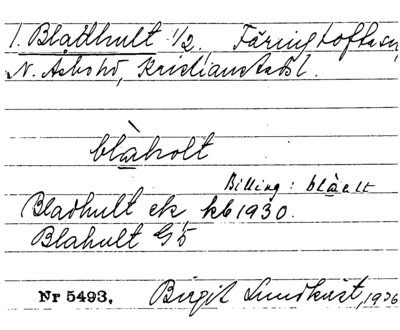 1. Bladhult 1/2. Färingtofta sn,
N. Åsbo hd, Kristianstads l.
blàholt
Billing: blàelt
Bladhult ek kb 1930.
Blahult GS
Nr 5493. Birgit Lundkvist, 1936